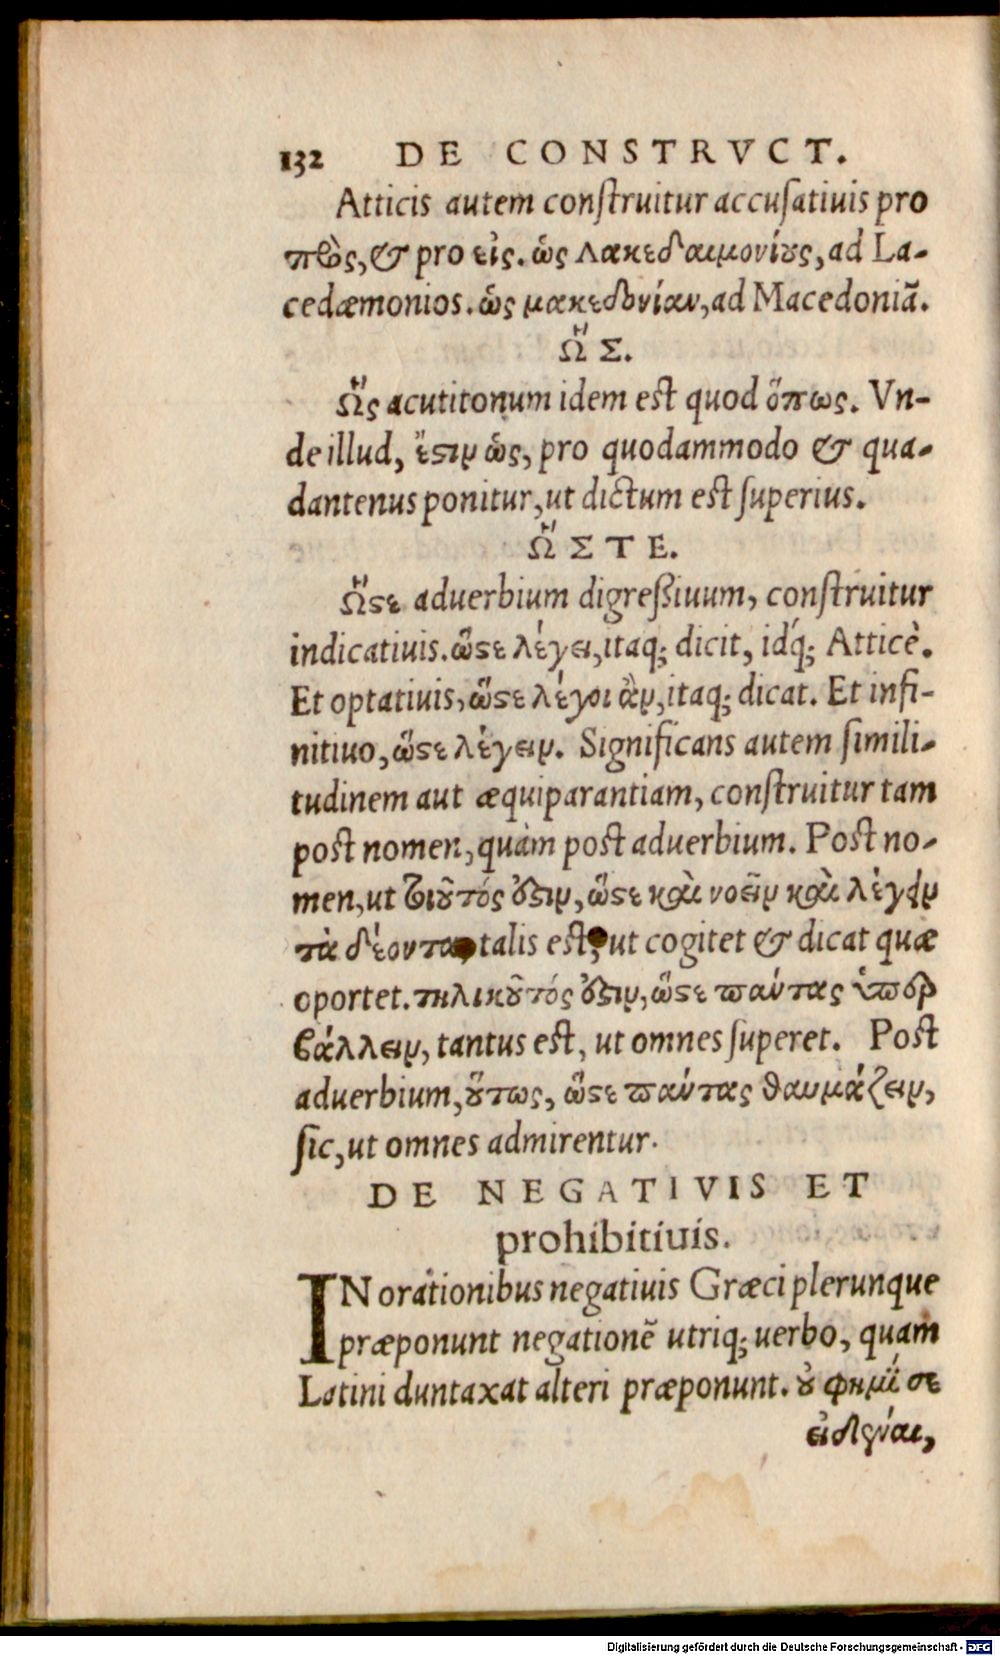 132 DE CONSTRVCT.
Atticis autem conſtruitur accuſatiuis pro
πρὸς, & pro εἰς. ὡς Λακεδαιμονίους, ad La-
cedæmonios. ὡς μακεδονίαν, ad Macedoniã.
Ὥ Σ.
Ὥς acutitonum idem eſt quod ὅπως. Vn-
de illud, ἔστιν ὡς, pro quodammodo & qua-
dantenus ponitur, ut dictum eſt ſuperius.
Ὥ Σ Τ Ε.
Ὥστε aduerbium digreßiuum, conſtruitur
indicatiuis. ὥστε λέγει, itaq; dicit, idq́; Atticè.
Et optatiuis, ὥστε λέγοι ἂν, itaq; dicat. Et infi-
nitiuo, ὥστε λέγειν. Significans autem ſimili-
tudinem aut æquiparantiam, conſtruitur tam
poſt nomen, quàm poſt aduerbium. Poſt no-
men, ut τοιοῦτός ὅστιν, ὥστε καὶ νοεῖν καὶ λέγειν
τὰ δέοντα, talis eſt, ut cogitet & dicat quæ
oportet. τηλικοῦτός ὅστιν, ὥστε παύτας ὑπερ
βάλλειν, tantus eſt, ut omnes ſuperet. Poſt
aduerbium, οὕτως, ὥστε παύτας θαυμάζειν,
ſic, ut omnes admirentur.
DE NEGATIVIS ET
prohibitiuis.
IN orationibus negatiuis Græci plerunque
præponunt negationẽ utriq; uerbo, quam
Latini duntaxat alteri præponunt. οὐ φημί σε
εἰδέναι,
Digitalisierung gefördert durch die Deutsche Forschungsgemeinschaft - DFG